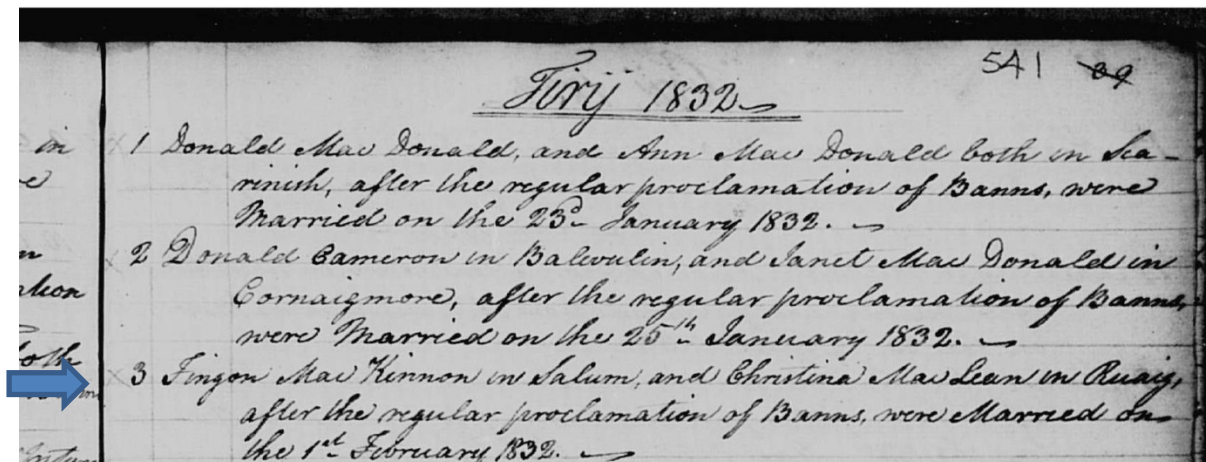 541 39
Tirij 1832
in 1 Donald Mac Donald, and Ann Mac Donald both in Sca-
rinish, after the regular proclamation of Banns, were
Married on the 23d January 1832.
2 Donald Cameron in Balevulin, and Janet Mac Donald in
Cornaigmore, after the regular proclamation of Banns,
were Married on the 25th January 1832.
both
3 Fingon Mac Kinnon in Salum, and Christina Mac Lean in Ruaig,
after the regular proclamation of Banns, were Married on
the 1st February 1832.